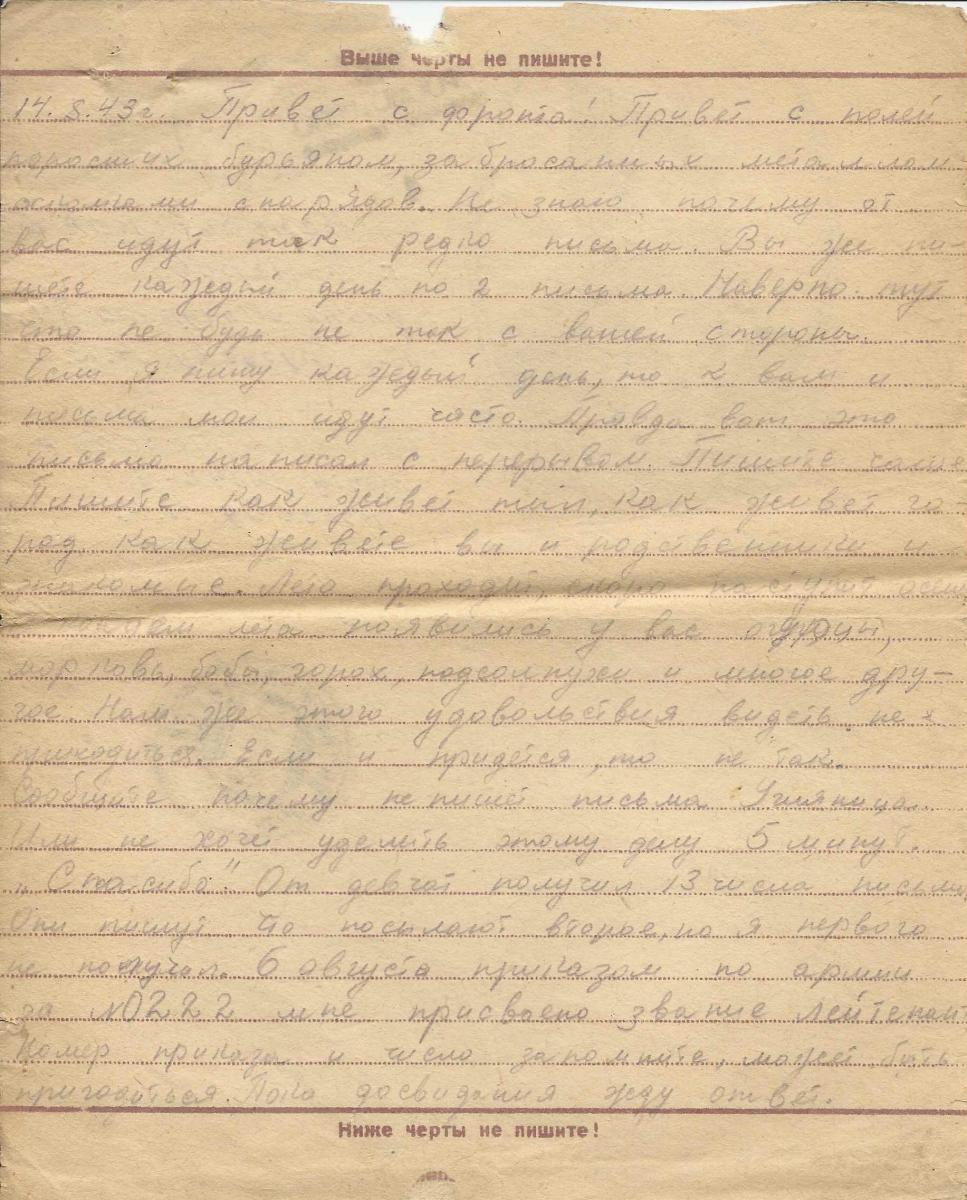 Выше черты не пишите!
14.8.43г. Привет с фронта! Привет с полей
поросших бурьяном, забросанных металлом
осколками снарядов. Не знаю почему от
вас идут так редко письма. Вы же пи-
шете каждый день по 2 письма. Наверно тут
что не будь не так с вашей стороны.
Если я пишу каждый день, то к вам и
письма мои идут часто. Правда вот это
письмо написал с перерывом. Пишите чаще
Пишите как живет тыл, как живет го-
род как живете вы и родственники и
знакомые. Лето проходит, скоро наступит осень
лета появились у вас огурцы,
морковь, бобы, горох, подсолнухи и многое дру-
гое. Нам же этого удовольствия видеть не
приходиться. Если и придется, то не так.
Сообщите почему не пишет письма
Или не хочет уделить этому делу 5 минут.
„Спасибо" От девчат получил 13 числа письмо
Они пишут что посылают второе, но я первого
не получал. 6 августа приказом по армии
за №0222 мне присвоено звание лейтенант
Номер приказа и число запомните, может быть
пригодиться. Пока досвидания жду ответ.
Ниже черты не пишите!